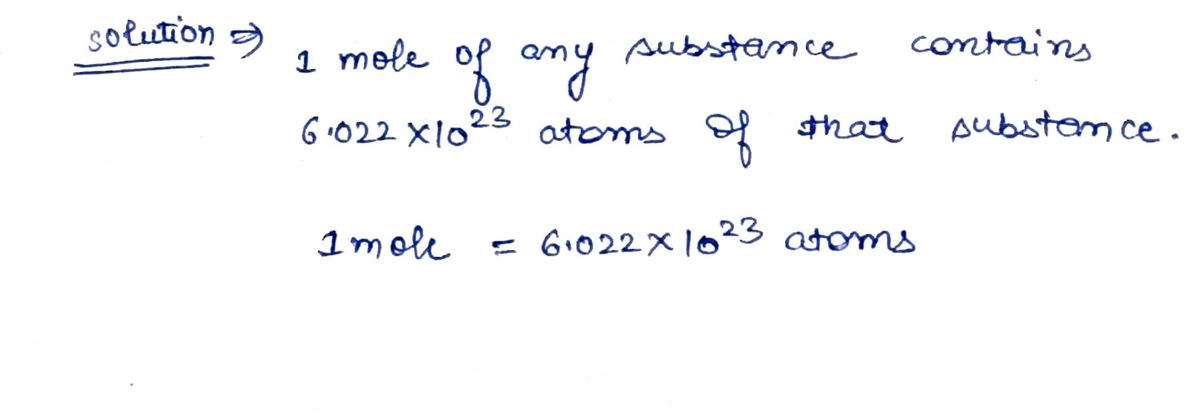 solution ⇒ 1 mole of any substance contains
6.022 × 10²³ atoms of that substance.
1 mole = 6.022 × 10²³ atoms